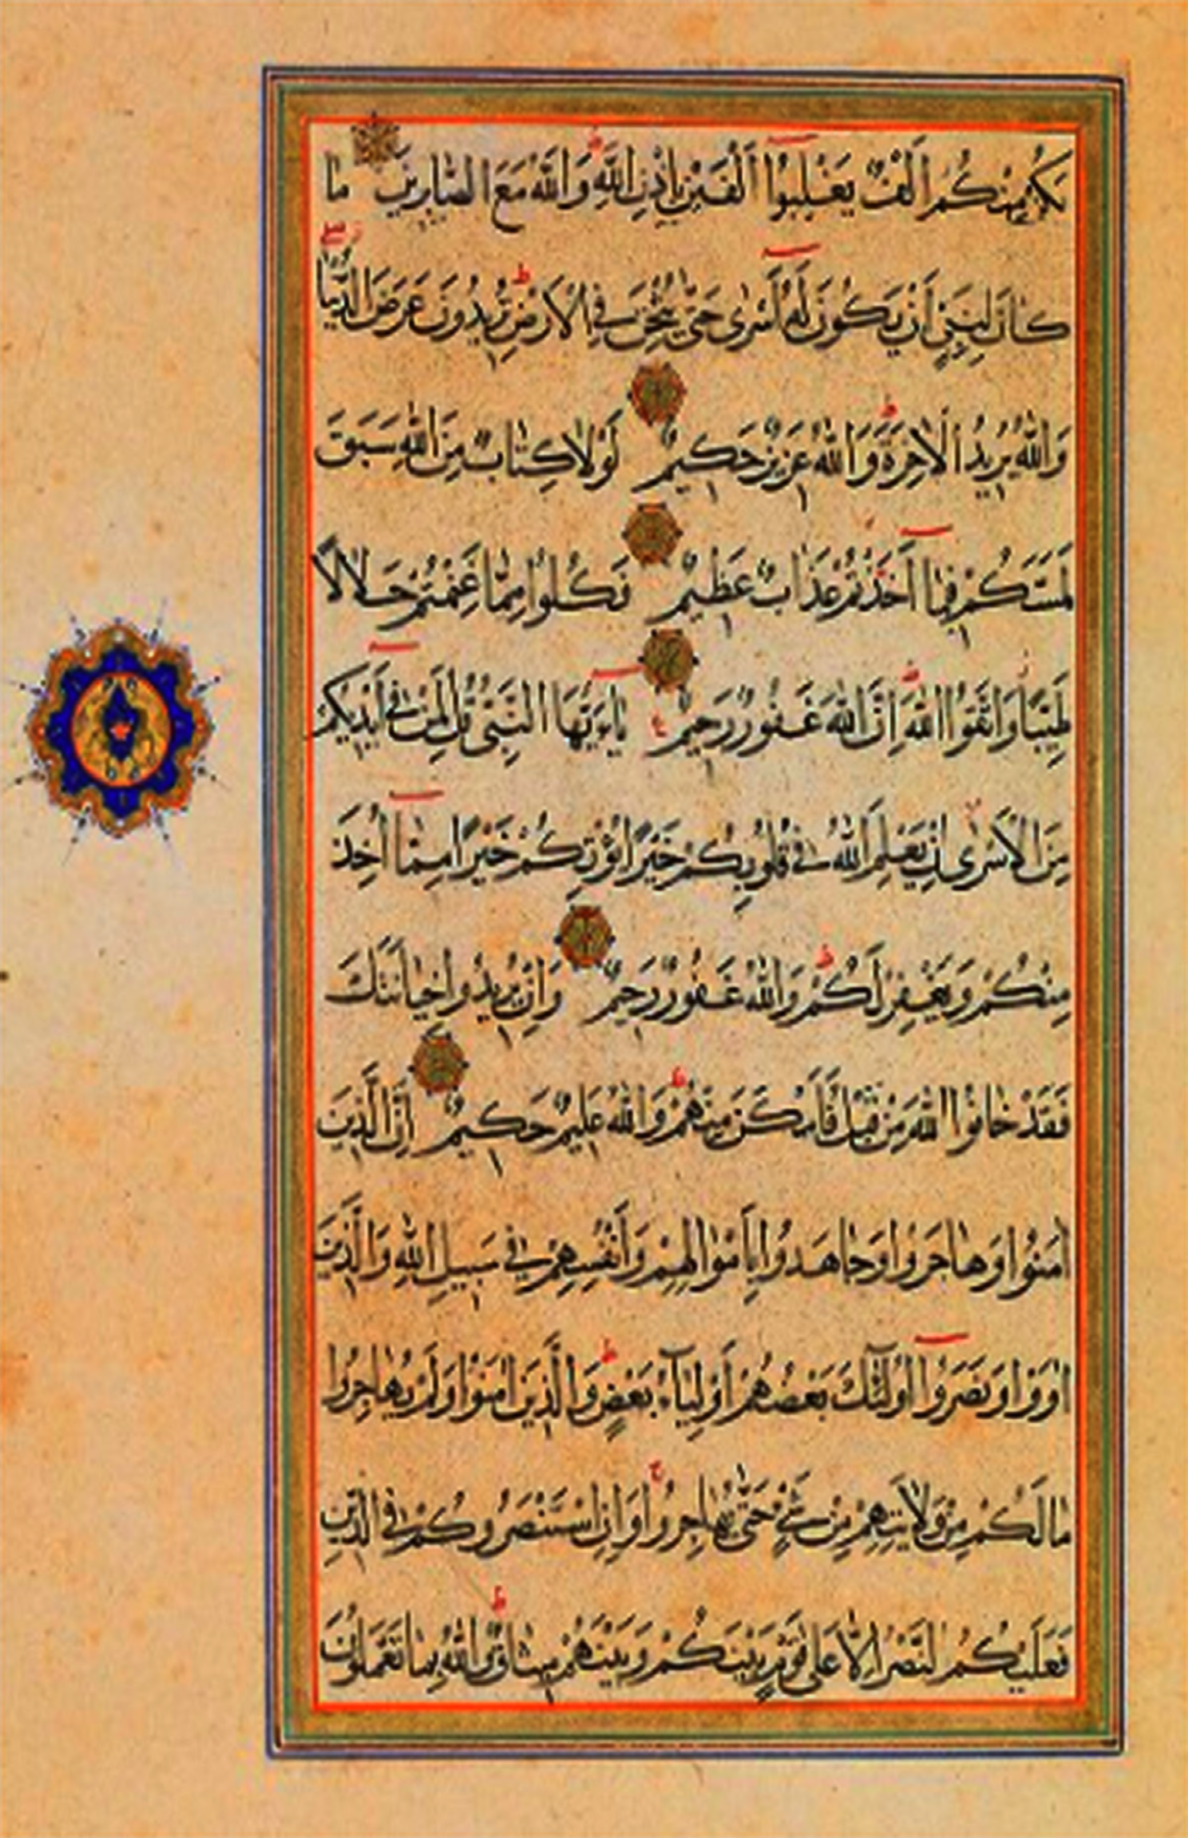 يَكُنْ مِنْكُمْ أَلْفٌ يَغْلِبُوا أَلْفَيْنِ بِإِذْنِ اللَّهِ وَاللَّهُ مَعَ الصَّابِرِينَ مَا
كَانَ لِنَبِيٍّ أَنْ يَكُونَ لَهُ أَسْرَى حَتَّى يُثْخِنَ فِي الْأَرْضِ تُرِيدُونَ عَرَضَ الدُّنْيَا
وَاللَّهُ يُرِيدُ الْآخِرَةَ وَاللَّهُ عَزِيزٌ حَكِيمٌ لَوْلَا كِتَابٌ مِنَ اللَّهِ سَبَقَ
لَمَسَّكُمْ فِيمَا أَخَذْتُمْ عَذَابٌ عَظِيمٌ فَكُلُوا مِمَّا غَنِمْتُمْ حَلَالًا
طَيِّبًا وَاتَّقُوا اللَّهَ إِنَّ اللَّهَ غَفُورٌ رَحِيمٌ يَاأَيُّهَا النَّبِيُّ قُلْ لِمَنْ فِي أَيْدِيكُمْ
مِنَ الْأَسْرَى إِنْ يَعْلَمِ اللَّهُ فِي قُلُوبِكُمْ خَيْرًا يُؤْتِكُمْ خَيْرًا مِمَّا أُخِذَ
مِنْكُمْ وَيَغْفِرْ لَكُمْ وَاللَّهُ غَفُورٌ رَحِيمٌ وَإِنْ يُرِيدُوا خِيَانَتَكَ
فَقَدْ خَانُوا اللَّهَ مِنْ قَبْلُ فَأَمْكَنَ مِنْهُمْ وَاللَّهُ عَلِيمٌ حَكِيمٌ إِنَّ الَّذِينَ
آمَنُوا وَهَاجَرُوا وَجَاهَدُوا بِأَمْوَالِهِمْ وَأَنْفُسِهِمْ فِي سَبِيلِ اللَّهِ وَالَّذِينَ
آوَوْا وَنَصَرُوا أُولَئِكَ بَعْضُهُمْ أَوْلِيَاءُ بَعْضٍ وَالَّذِينَ آمَنُوا وَلَمْ يُهَاجِرُوا
مَا لَكُمْ مِنْ وَلَايَتِهِمْ مِنْ شَيْءٍ حَتَّى يُهَاجِرُوا وَإِنِ اسْتَنْصَرُوكُمْ فِي الدِّينِ
فَعَلَيْكُمُ النَّصْرُ إِلَّا عَلَى قَوْمٍ بَيْنَكُمْ وَبَيْنَهُمْ مِيثَاقٌ وَاللَّهُ بِمَا تَعْمَلُونَ